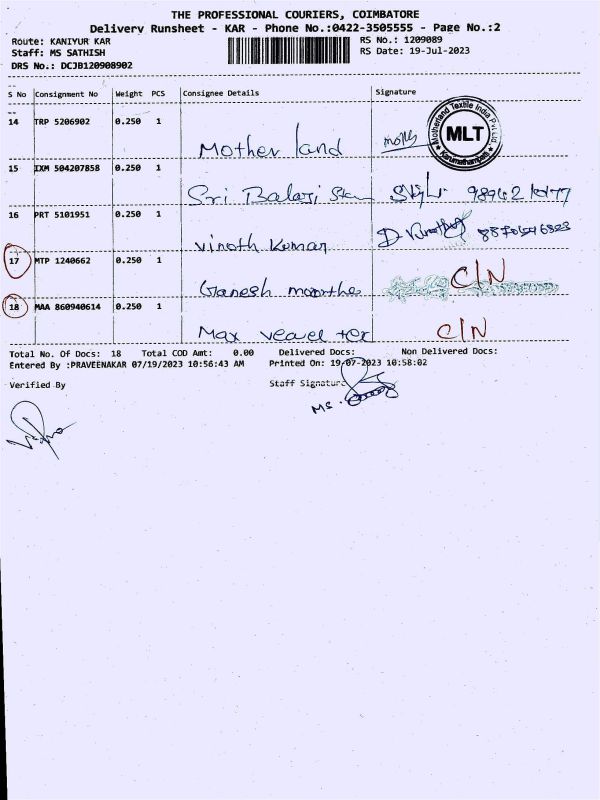 THE PROFESSIONAL COURIERS, COIMBATORE
Delivery Runsheet - KAR - Phone No.:0422-3505555 - Page No.:2
Route: KANIYUR KAR
RS No.: 1209089
Staff: MS SATHISH
RS Date: 19-Jul-2023
DRS No.: DCJB120908902
S No Consignment No Weight PCS Consignee Details Signature
14 TRP 5206902 0.250 1
Mother land
Motherland Textile India Pvt Ltd
MLT
Karumathampatti
15 IXM 504207858 0.250 1
Sri Balaji
16 PRT 5101951 0.250 1
vinoth Kumar
17 MTP 1240662 0.250 1
Ganesh C/N
18 MAA 860940614 0.250 1
Max C/N
Total No. Of Docs: 18 Total COD Amt: 0.00 Delivered Docs: Non Delivered Docs:
Entered By :PRAVEENAKAR 07/19/2023 10:56:43 AM Printed On: 19-07-2023 10:58:02
Verified By Staff Signature
MS.